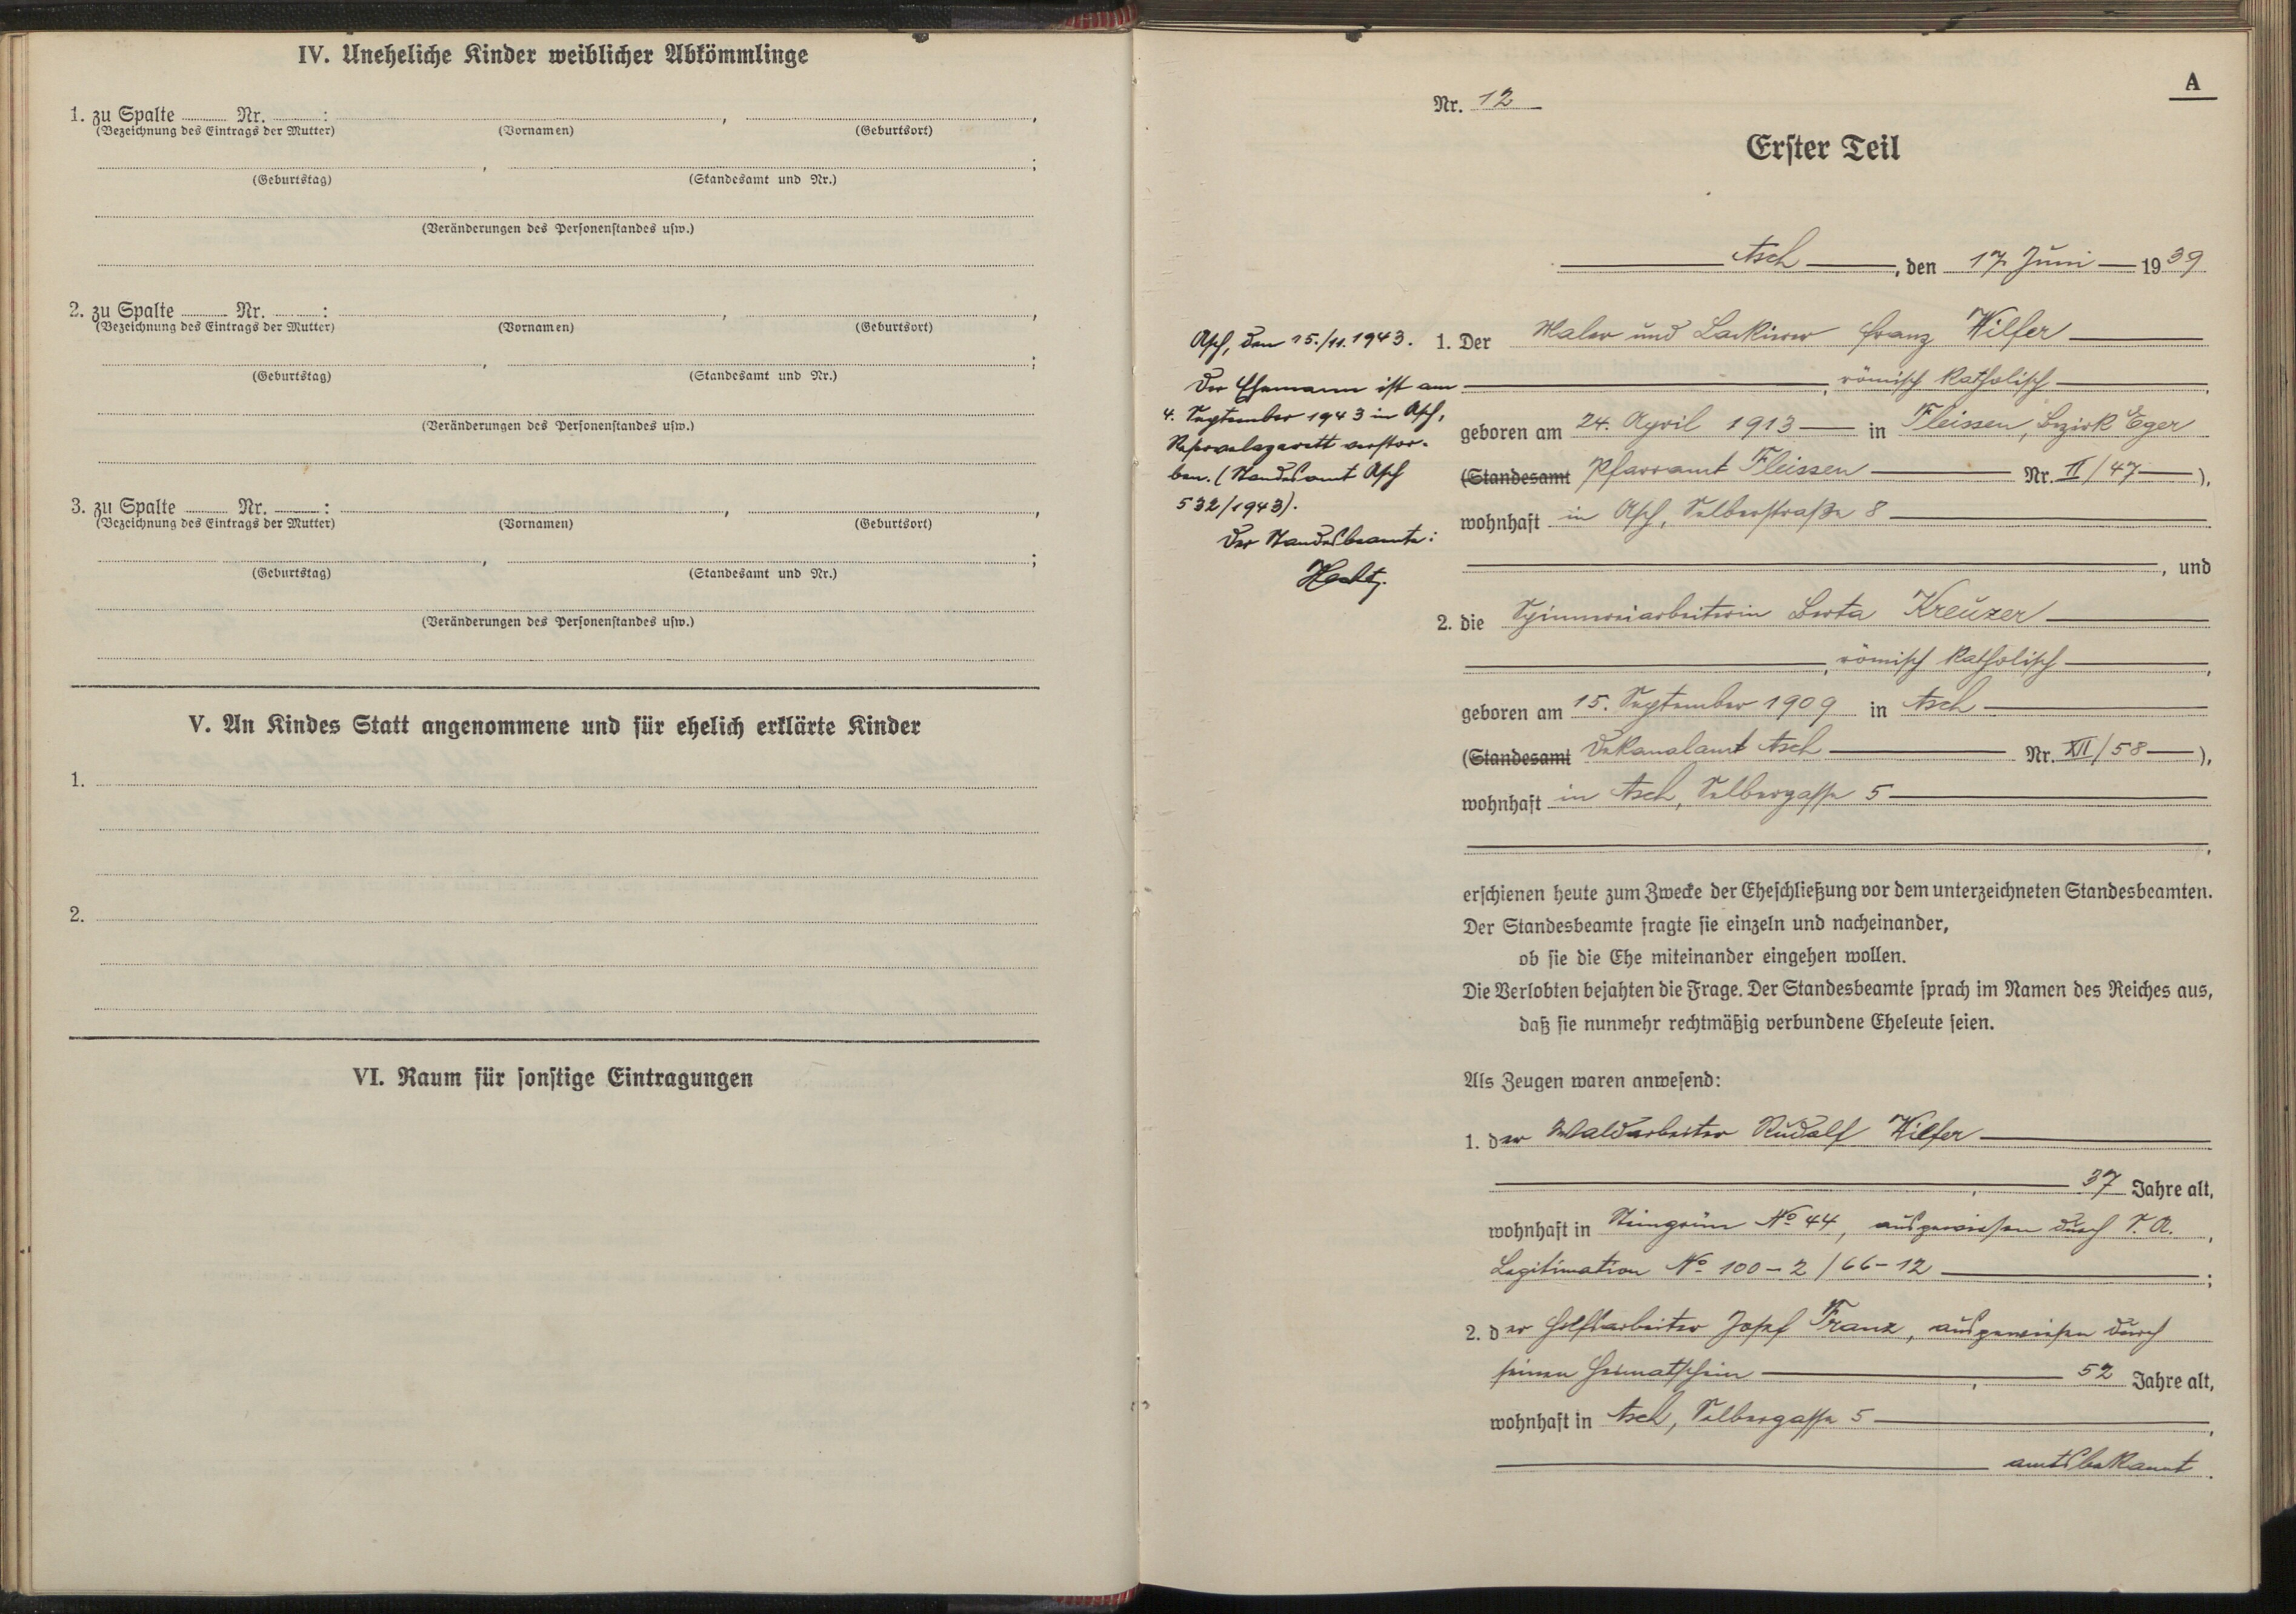 IV. Uneheliche Kinder weiblicher Abkömmlinge
1. zu Spalte ........ Nr. ........ :
(Bezeichnung des Eintrags der Mutter) (Vornamen) (Geburtsort)
(Geburtstag) (Standesamt und Nr.)
(Veränderungen des Personenstandes usw.)
2. zu Spalte ........ Nr. ........ :
(Bezeichnung des Eintrags der Mutter) (Vornamen) (Geburtsort)
(Geburtstag) (Standesamt und Nr.)
(Veränderungen des Personenstandes usw.)
3. zu Spalte ........ Nr. ........ :
(Bezeichnung des Eintrags der Mutter) (Vornamen) (Geburtsort)
(Geburtstag) (Standesamt und Nr.)
(Veränderungen des Personenstandes usw.)
V. An Kindes Statt angenommene und für ehelich erklärte Kinder
1.
2.
VI. Raum für sonstige Eintragungen
A
Nr. 12
Erster Teil
Asch, den 17. Juni 1939
Asch, den 15./11. 1943.
Der Ehemann ist am
4. September 1943 in Asch,
Reservelazarett verstor-
ben. (Standesamt Asch
532/1943).
Der Standesbeamte:
1. Der Maler und Lackierer Franz Wilfer
, römisch katholisch,
geboren am 24. April 1913 in Fleissen, Bezirk Eger
(Standesamt Pfarramt Fleissen Nr. II/47),
wohnhaft in Asch, Selberstraße 8
, und
2. die Spinnereiarbeiterin Berta Kreuzer
, römisch katholisch,
geboren am 15. September 1909 in Asch
(Standesamt Dekanalamt Asch Nr. XII/58),
wohnhaft in Asch, Selbergasse 5
,
erschienen heute zum Zwecke der Eheschließung vor dem unterzeichneten Standesbeamten.
Der Standesbeamte fragte sie einzeln und nacheinander,
ob sie die Ehe miteinander eingehen wollen.
Die Verlobten bejahten die Frage. Der Standesbeamte sprach im Namen des Reiches aus,
daß sie nunmehr rechtmäßig verbundene Eheleute seien.
Als Zeugen waren anwesend:
1. der Waldarbeiter Rudolf Wilfer
, 37 Jahre alt,
wohnhaft in Steingrün No 44, ausgewiesen durch S. A.,
Legitimation No 100-2/66-12;
2. der Hilfsarbeiter Josef Franz, ausgewiesen durch
seinen Heimatschein, 52 Jahre alt,
wohnhaft in Asch, Selbergasse 5,
amtsbekannt.